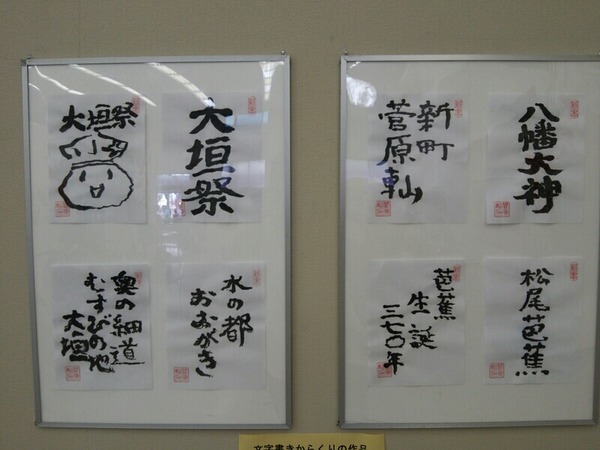 大垣祭
大垣祭
奥の細道
むすびの地
大垣
水の都
おおがき
新町
菅原軕
八幡大神
芭蕉
生誕
三七〇年
松尾芭蕉
文字書きからくりの作品